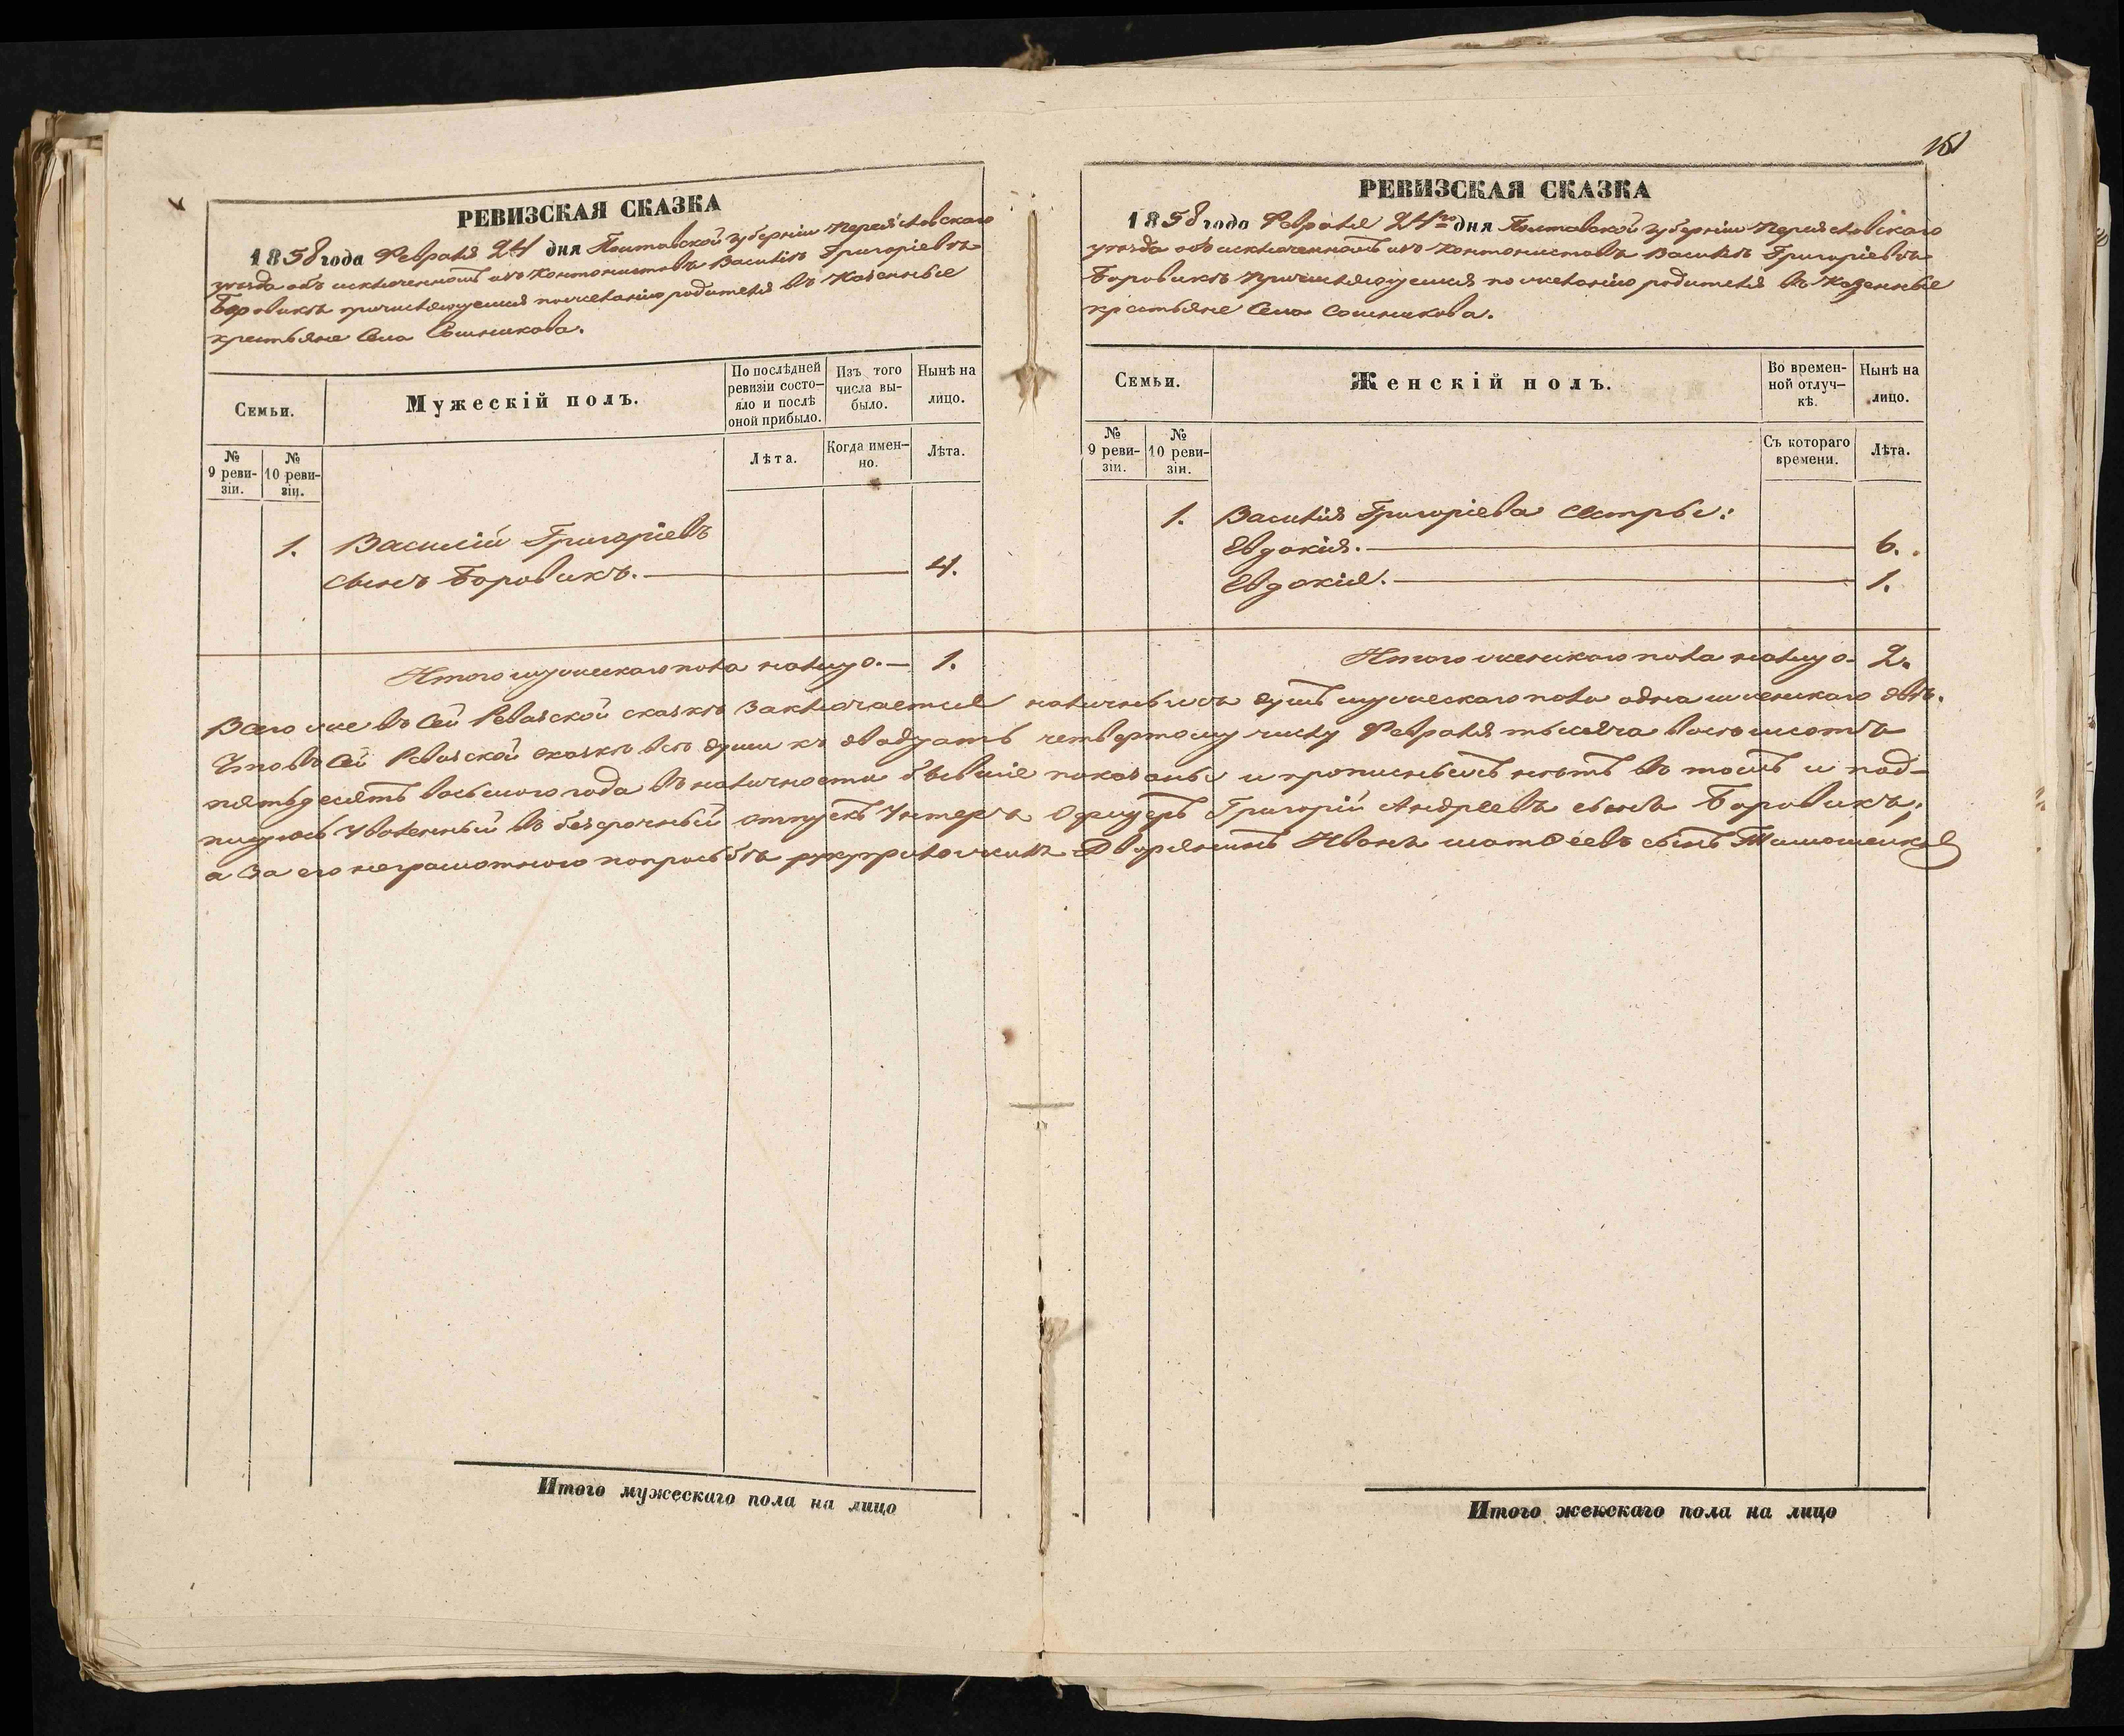 151
РЕВИЗСКАЯ СКАЗКА
1858 года Февраля 24 дня Полтавской Губерніи Переяславскаго
уезда объ исключенномъ изъ Кантонистовъ Василіѣ Григоріевѣ
Боровикѣ причисляющемся по желанію родителя въ Казенные
крестьяне Села Сошникова.
Семьи.
Мужескій полъ.
По послѣдней ревизіи состо-
яло и послѣ оной прибыло.
Изъ того числа вы-
было.
Нынѣ на лицо.
№ 9 реви-
зіи.
№ 10 реви-
зіи.
Лѣта.
Когда имен-
но.
Лѣта.
1. Василій Григоріевъ
сынъ Боровикъ. 4.
Итого мужескаго пола налицо. 1.
РЕВИЗСКАЯ СКАЗКА
1858 года Февраля 24го дня Полтавской Губерніи Переяславскаго
уезда объ исключенномъ изъ Кантонистовъ Василіѣ Григоріевѣ
Боровикѣ причисляющемся по желанію родителя въ Казенные
крестьяне Села Сошникова.
Семьи.
Женскій полъ.
Во времен-
ной отлуч-
кѣ.
Нынѣ на лицо.
№ 9 реви-
зіи.
№ 10 реви-
зіи.
Съ котораго времени.
Лѣта.
1. Василія Григоріева Сестры:
Евдокія. 6.
Евдокія. 1.
Итого женскаго пола налицо 2.
Всего же въ Сей Ревизской сказкѣ Заключается наличныхъ душъ мужескаго пола одна и женскаго двѣ.
Что въ Сей Ревизской сказкѣ всѣ души къ двадцать четвертому числу Февраля тысяча восемьсотъ
пятьдесятъ восьмого года въ наличности бывшіе показаны и прописныхъ нѣтъ въ томъ и под-
пишусь Уволенный въ безсрочный отпускъ Унтеръ Офицеръ Григорій Андреевъ сынъ Боровикъ,
а за его неграмотнаго попросьбѣ рукуприложилъ Дворянинъ Иванъ Матѳеевъ сынъ Тимошенко
Итого мужескаго пола на лицо
Итого женскаго пола на лицо